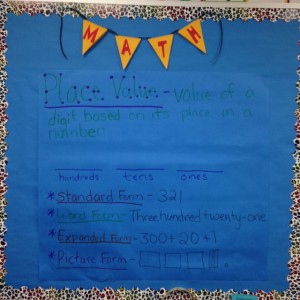 MATH
Place Value - value of a
digit based on its place in a
number
hundreds tens ones
* Standard Form - 321
* Word Form - Three hundred twenty-one
* Expanded Form - 300 + 20 + 1
* Picture Form -